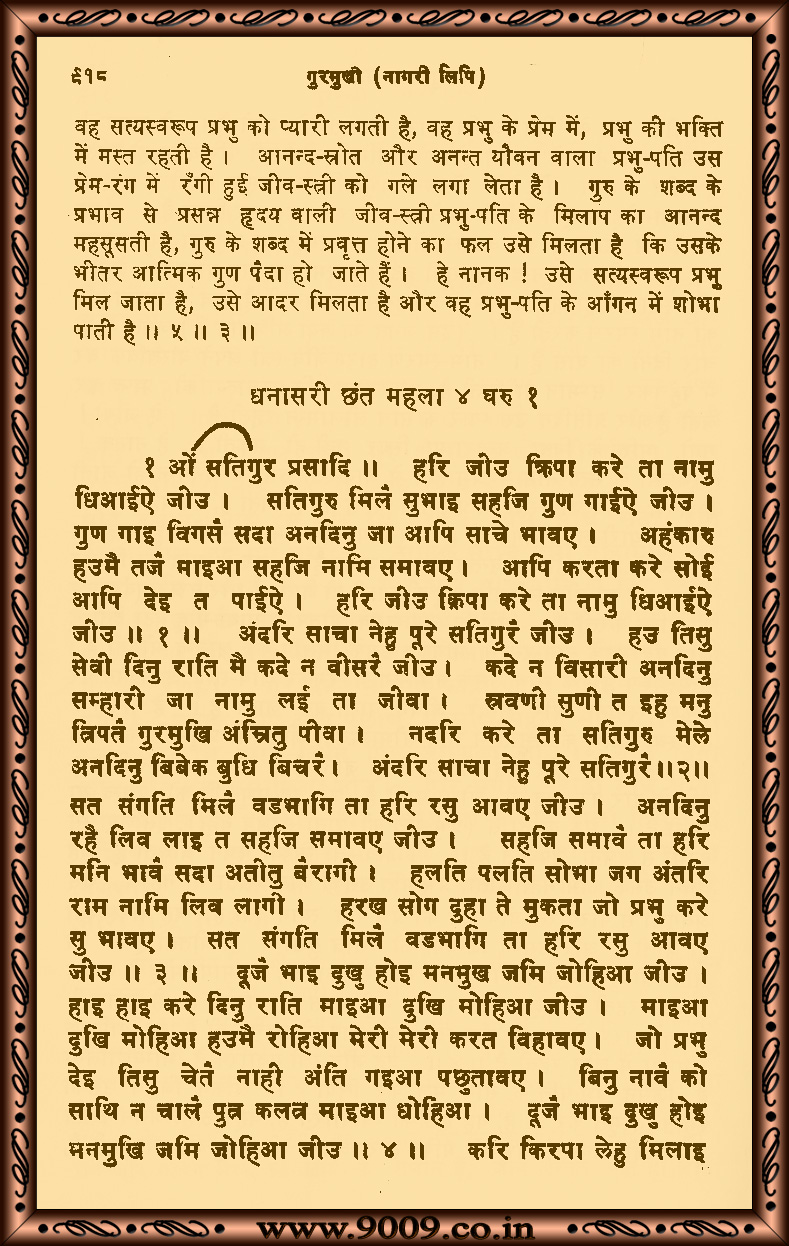 ९१८ गुरमुखी (नागरी लिपि)
वह सत्यस्वरूप प्रभु को प्यारी लगती है, वह प्रभु के प्रेम में, प्रभु की भक्ति
में मस्त रहती है । आनन्द-स्रोत और अनन्त यौवन वाला प्रभु-पति उस
प्रेम-रंग में रँगी हुई जीव-स्त्री को गले लगा लेता है । गुरु के शब्द के
प्रभाव से प्रसन्न हृदय वाली जीव-स्त्री प्रभु-पति के मिलाप का आनन्द
महसूसती है, गुरु के शब्द में प्रवृत्त होने का फल उसे मिलता है कि उसके
भीतर आत्मिक गुण पैदा हो जाते हैं । हे नानक ! उसे सत्यस्वरूप प्रभु
मिल जाता है, उसे आदर मिलता है और वह प्रभु-पति के आँगन में शोभा
पाती है ॥ ५ ॥ ३ ॥
धनासरी छंत महला ४ घरु १
१ ओं सतिगुर प्रसादि ॥ हरि जीउ क्रिपा करे ता नामु
धिआईऐ जीउ । सतिगुरु मिलै सुभाइ सहजि गुण गाईऐ जीउ ।
गुण गाइ विगसै सदा अनदिनु जा आपि साचे भावए । अहंकारु
हउमै तजै माइआ सहजि नामि समावए । आपि करता करे सोई
आपि देइ त पाईऐ । हरि जीउ क्रिपा करे ता नामु धिआईऐ
जीउ ॥ १ ॥ अंदरि साचा नेहु पूरे सतिगुरै जीउ । हउ तिसु
सेवी दिनु राति मै कदे न वीसरै जीउ । कदे न विसारी अनदिनु
सम्हारी जा नामु लई ता जीवा । स्रवणी सुणी त इहु मनु
त्रिपतै गुरमुखि अंम्रितु पीवा । नदरि करे ता सतिगुरु मेले
अनदिनु बिबेक बुधि बिचरै । अंदरि साचा नेहु पूरे सतिगुरै॥२॥
सत संगति मिलै वडभागि ता हरि रसु आवए जीउ । अनदिनु
रहै लिव लाइ त सहजि समावए जीउ । सहजि समावै ता हरि
मनि भावै सदा अतीतु बैरागी । हलति पलति सोभा जग अंतरि
राम नामि लिव लागी । हरख सोग दुहा ते मुकता जो प्रभु करे
सु भावए । सत संगति मिलै वडभागि ता हरि रसु आवए
जीउ ॥ ३ ॥ दूजै भाइ दुखु होइ मनमुख जमि जोहिआ जीउ ।
हाइ हाइ करे दिनु राति माइआ दुखि मोहिआ जीउ । माइआ
दुखि मोहिआ हउमै रोहिआ मेरी मेरी करत विहावए । जो प्रभु
देइ तिसु चेतै नाही अंति गइआ पछुतावए । बिनु नावै को
साथि न चालै पुत्र कलत्र माइआ धोहिआ । दूजै भाइ दुखु होइ
मनमुखि जमि जोहिआ जीउ ॥ ४ ॥ करि किरपा लेहु मिलाइ
www.9009.co.in